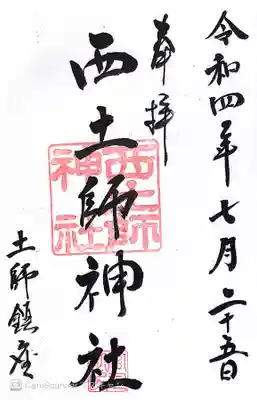 令和四年七月二十五日
奉拝
西土師神社
西土師神社
土師鎮座
CamScanner